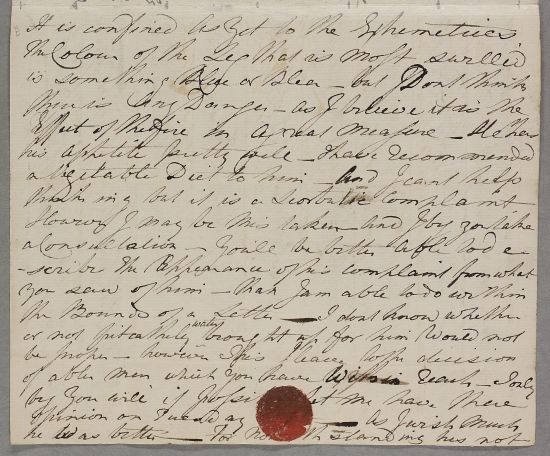 It is confined as yet to the Ephemeties
the Colour of the Leg that is most swell'd
is something Blue or Blea - but I Dont think
there is any Danger - as I believe it is the
Effect of the fire in a great measure - He has
his appetite pretty well - I have recommended
a vegitable Diet to him - and I cant help
thinking but it is a Scorbutic complaint
However I may be mistaken - and I beg you take
a Consultation - you'll be better able to de
-scribe the appearance of his complaint from what
you saw of him - than I am able to do within
the Bounds of a Letter - I dont know whether
or not water brought up for him would not
be proper - however this I leave to the decision
of able men which you have within reach - I only
beg you will if possible let me have there
opinion on Tuesday - as I wish much
he was better - For not with standing his not